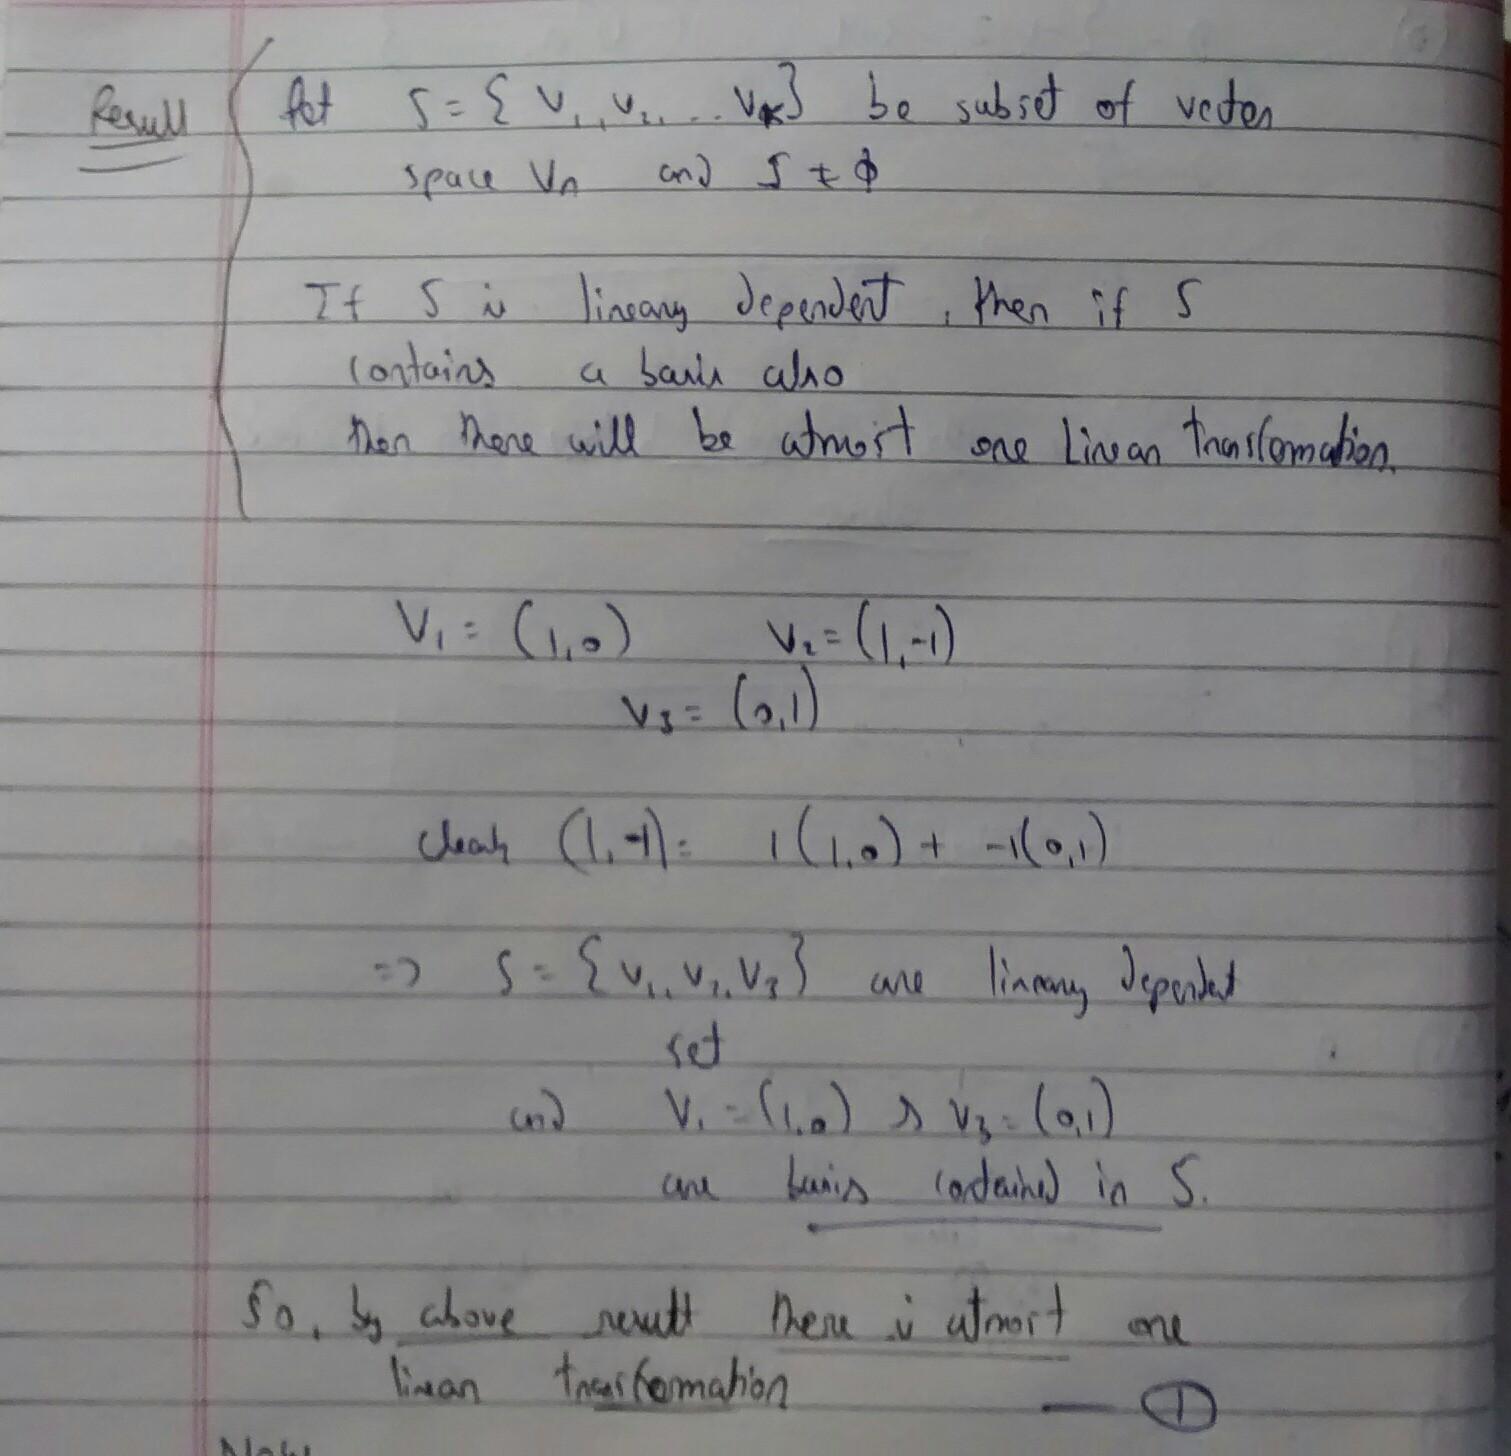 Result
Let S = { V1, V2, ... Vk} be subset of vector
space Vn and S ≠ ϕ
If S is lineary dependent, then if S
contains a basis also
then there will be atmost one Linear transformation.
V1 = (1,0) V2 = (1,-1)
V3 = (0,1)
clearly (1,-1) = 1(1,0) + -1(0,1)
=> S = { V1, V2, V3 } are lineary dependent
set
and V1 = (1,0) & V3 = (0,1)
are basis contained in S.
So, by above result there is atmost one
linear transformation — ①
Now